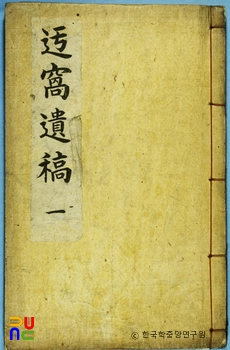 迃窩遺稿
一
ⓒ 한국학중앙연구원